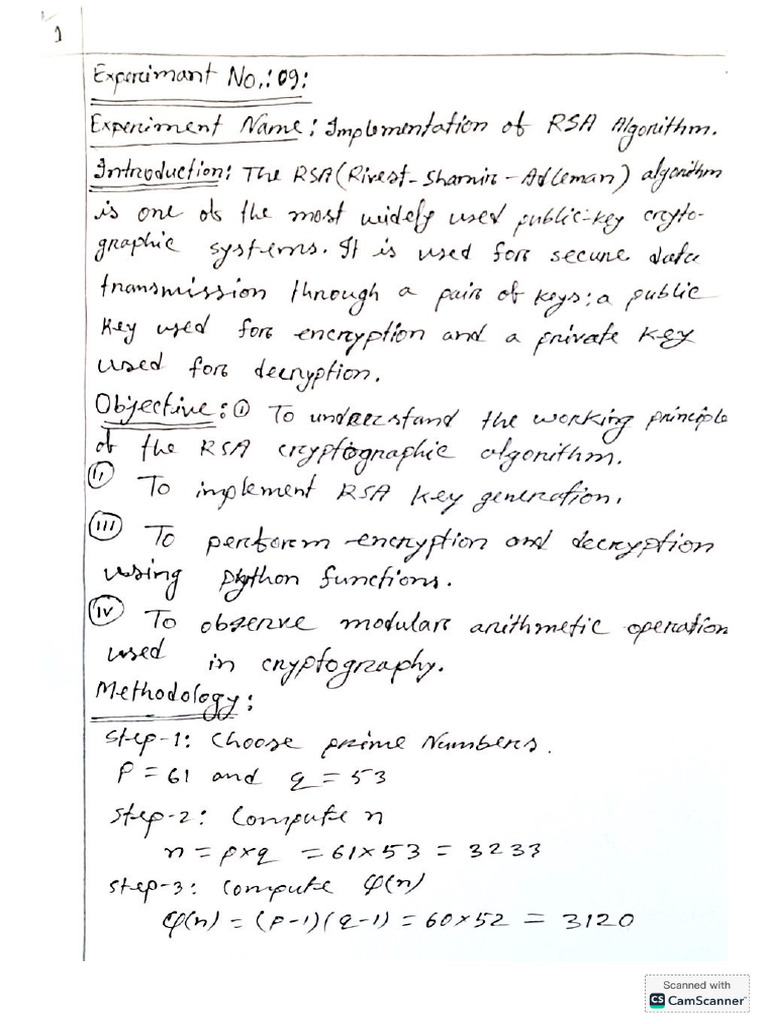 1
Experimant No.: 09:
Experiment Name: Implementation of RSA Algorithm.
Introduction: The RSA (Rivest-Shamir-Adleman) algorithm
is one of the most widely used public-key crypto-
graphic systems. It is used for secure data
transmission through a pair of keys: a public
key used for encryption and a private key
used for decryption.
Objective: (i) To understand the working principle
of the RSA cryptographic algorithm.
(ii) To implement RSA key generation.
(iii) To perform encryption and decryption
using python functions.
(iv) To observe modular arithmetic operation
used in cryptography.
Methodology:
Step-1: Choose prime Numbers.
P = 61 and q = 53
Step-2: Compute n
n = p×q = 61×53 = 3233
Step-3: Compute φ(n)
φ(n) = (p-1)(q-1) = 60×52 = 3120
Scanned with
CS CamScanner